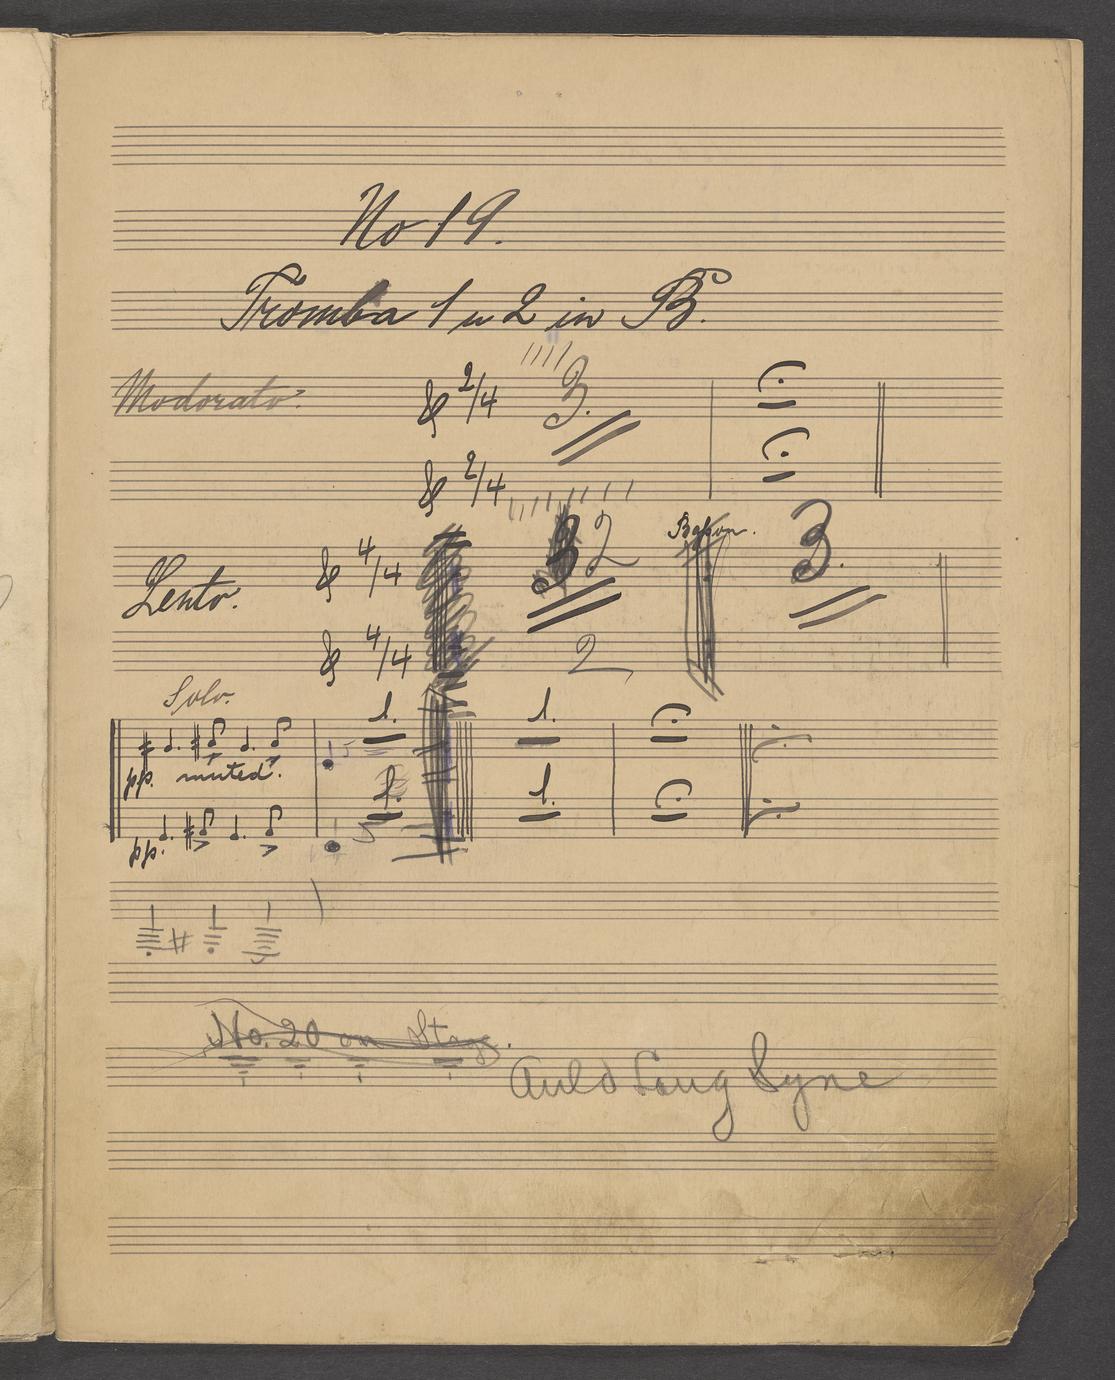 No 19.
Tromba 1 u 2 in B.
Moderato. 2/4 3.
2/4
Lento. 4/4 2 3.
4/4 2
Solo.
1. 1.
pp. muted.
1. 1.
pp.
No. 20 on Stage.
Auld Lang Syne